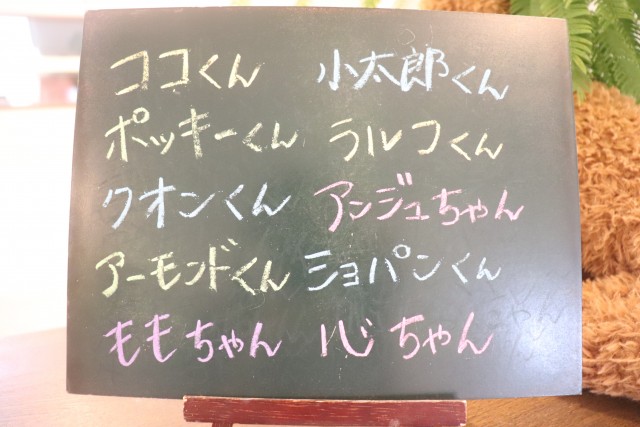 ココくん 小太郎くん
ポッキーくん ラルフくん
クオンくん アンジュちゃん
アーモンドくん ショパンくん
ももちゃん 心ちゃん